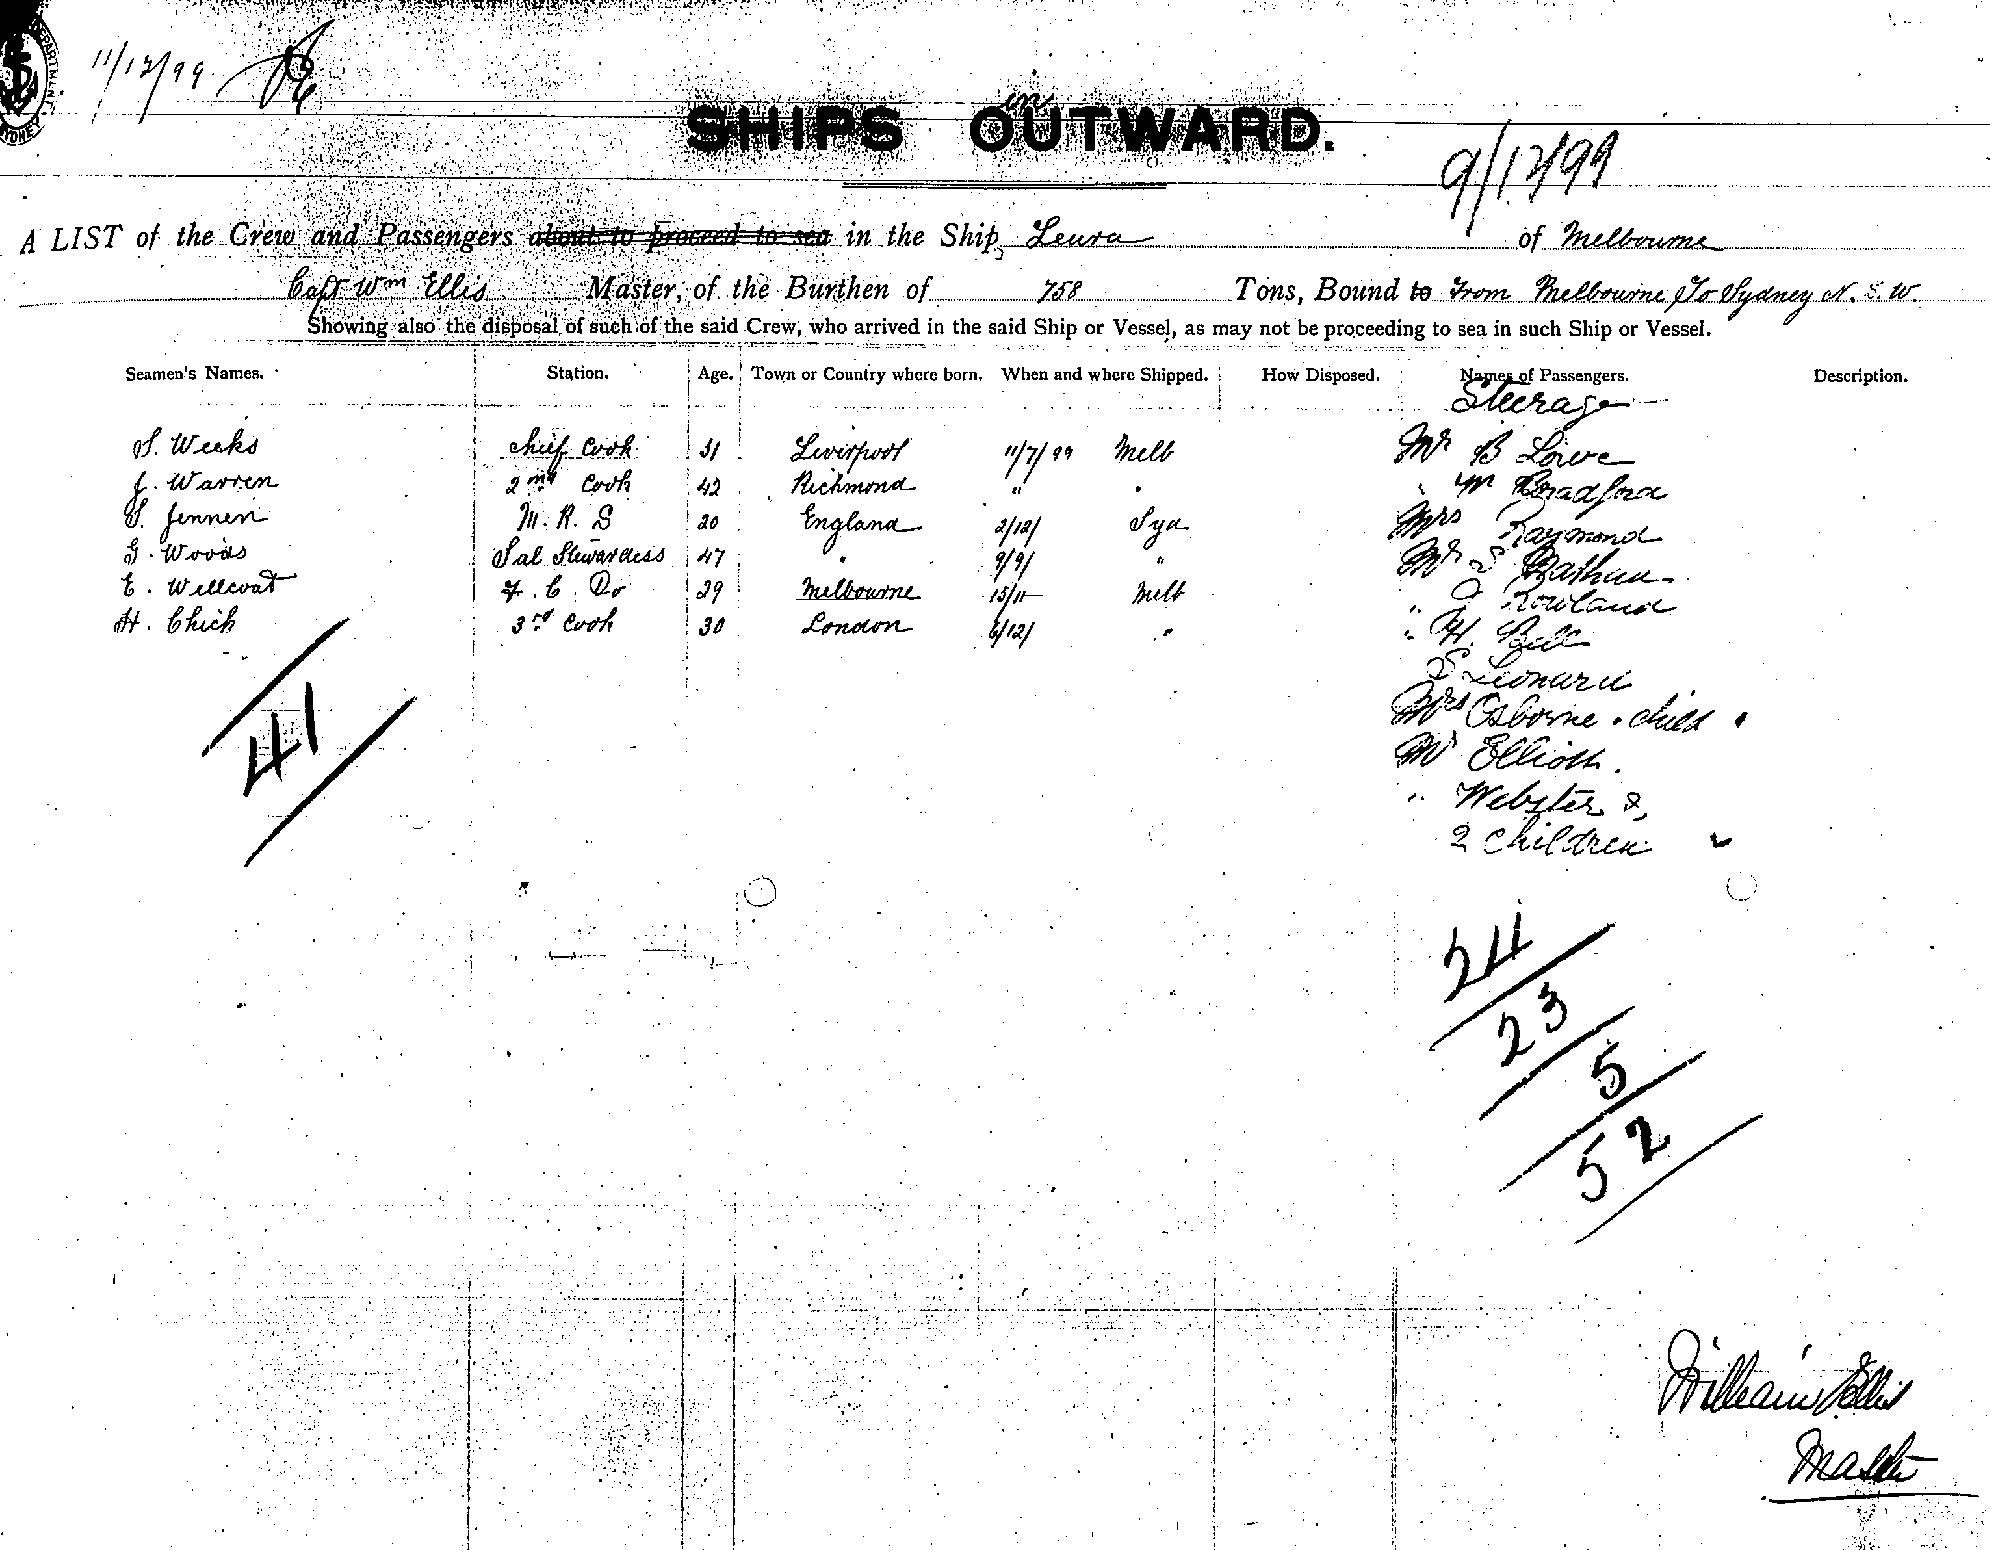 DEPARTMENT
SYDNEY
11/12/99
in
SHIPS OUTWARD.
9/12/99
A LIST of the Crew and Passengers about to proceed to sea in the Ship, Leura of Melbourne
Capt Wm Ellis Master, of the Burthen of 758 Tons, Bound to From Melbourne To Sydney N. S. W.
Showing also the disposal of such of the said Crew, who arrived in the said Ship or Vessel, as may not be proceeding to sea in such Ship or Vessel.
Seamen's Names. Station. Age. Town or Country where born. When and where Shipped. How Disposed. Names of Passengers. Description.
Steerage
S. Weeks Chief Cook 31 Liverpool 11/7/99 Melb Mr B Lowe
J. Warren 2nd Cook 42 Richmond " " " M Bradford
S. Jennen M. R. S 20 England 2/12/ Syd Mrs Raymond
G. Woods Sal Stewardess 47 " 9/9/ " Mr S Nathan
E. Wellcoat F. C. Do 29 Melbourne 15/11 Melb " Rowland
H. Chick 3rd Cook 30 London 6/12/ " " H. Bell
S Leonard
Mrs Osborne & child
Mr Elliott.
" Webster &
2 Children
41
24
23
5
52
William Ellis
Master